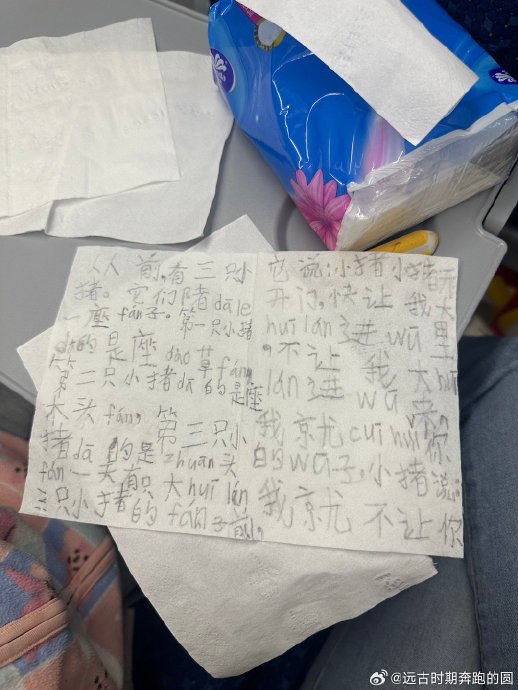 人人前,有三只小
猪。它们陼dā le
一座fán子。第一只小猪
dā的是座dào草fáng
第二只小猪dā的是座
木头fáng,第三只小
猪dā的是zhuān头
fán一天有只大huī lán
三只小猪的fán子前。
它说:小猪小猪
开门,快让我大
huī lán进wū里
,不让我大huī
lán进wū
我京尤cuī huǐ你
的wū子,小猪说。
我京尤不让你
@远古时期奔跑的圆